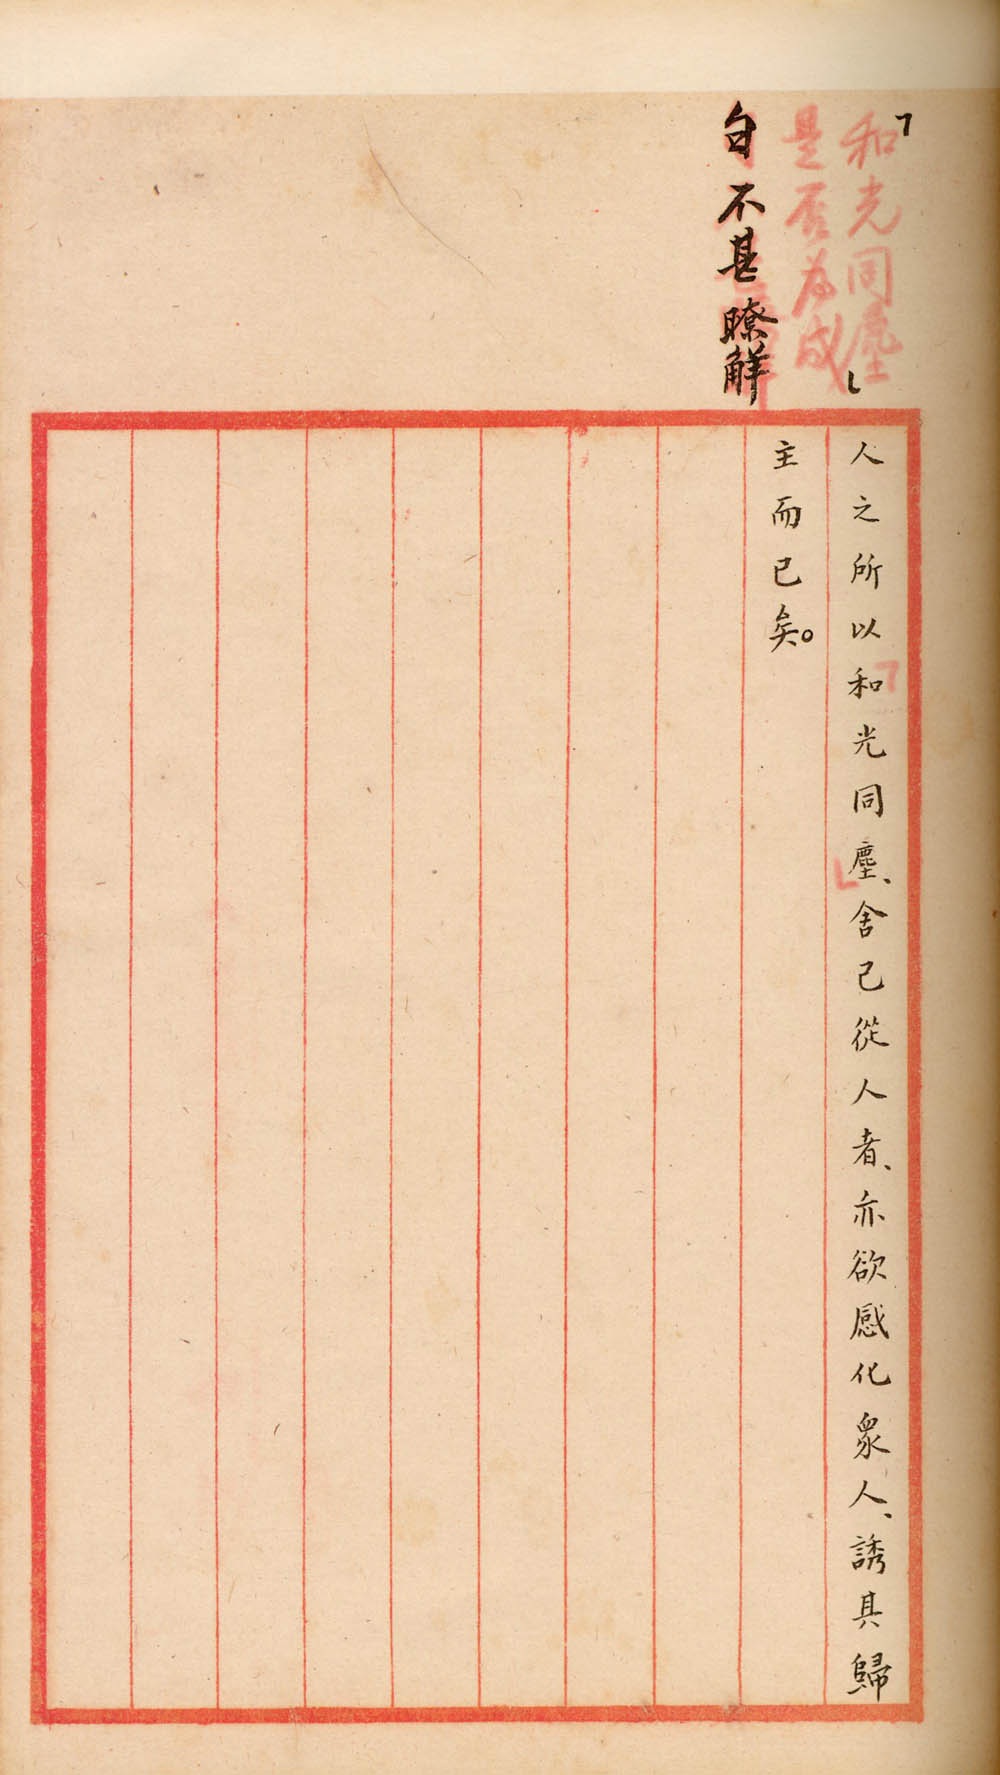 「和光同塵」
是否為成
句不甚瞭解
人之所以「和光同塵」、舍己從人者、亦欲感化眾人、誘其歸
主而已矣。